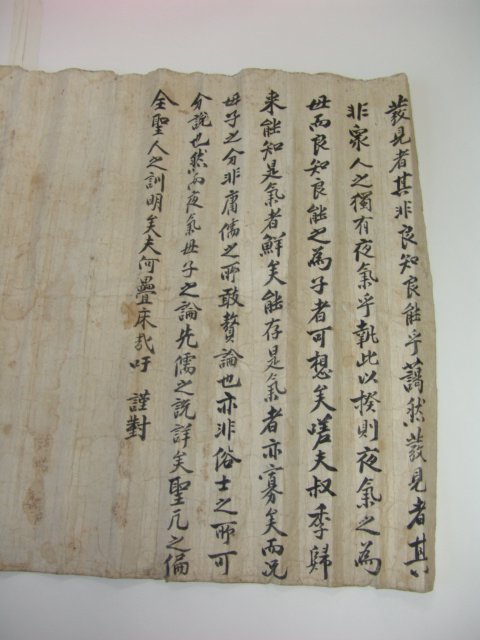 發見者其非良知良能乎藹然發見者其
非衆人之獨有夜氣乎執此以揆則夜氣之爲
母而良知良能之爲子者可想矣嗟夫叔季歸
來能知是氣者鮮矣能存是氣者亦寡矣而況
母子之分非庸儒之所敢贅論也亦非俗士之所可
分說也然而夜氣母子之論先儒之說詳矣聖凡之偏
全聖人之訓明矣夫何疊床哉吁 謹對